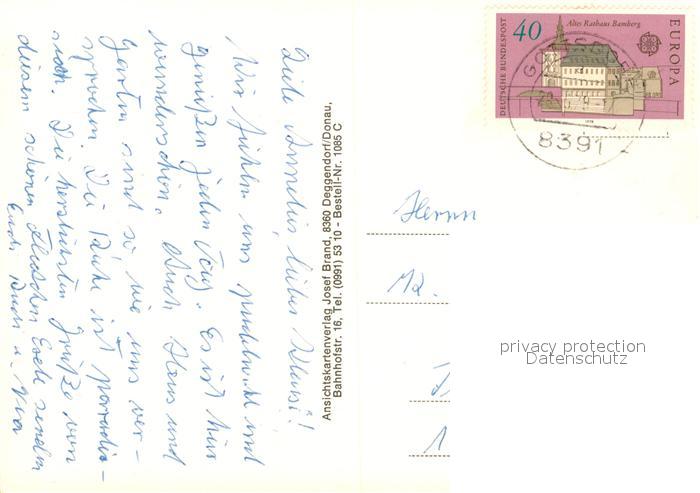 Liebe Annelis, lieber Klaus!
Wir fühlen uns pudelwohl und
genießen jeden Tag. Es ist hier
wunderschön. Auch Haus und
Garten sind so wie uns ver-
sprochen. Die Ruhe ist paradie-
sisch. Die herzlichsten Grüße von
diesem schönen Fleckchen Erde senden
Euch Rudi u.
Ansichtskartenverlag Josef Brand, 8360 Deggendorf/Donau,
Bahnhofstr. 16, Tel. (0991) 53 10 - Bestell-Nr. 1085 C
DEUTSCHE BUNDESPOST
40
Altes Rathaus Bamberg
EUROPA
1978
8391
Herrn
privacy protection
Datenschutz